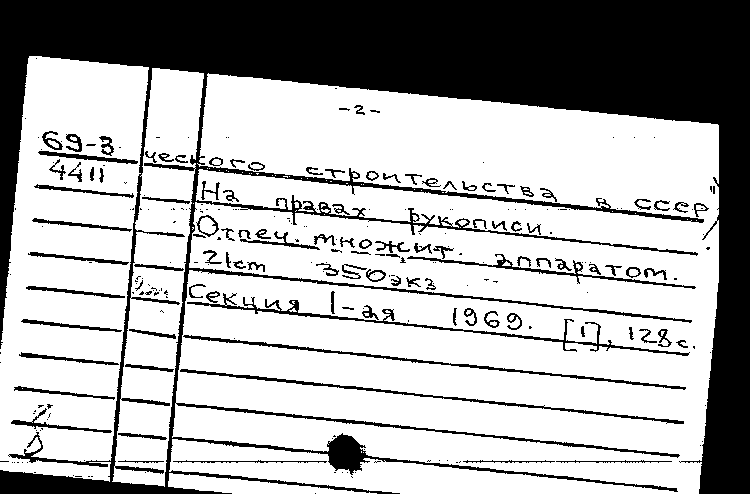 -2-
69-3
4411
ческого строительства в СССР"/
На правах рукописи.
Отпеч. множит. аппаратом.
21cm 350экз
Секция I-ая 1969. [1], 128с.